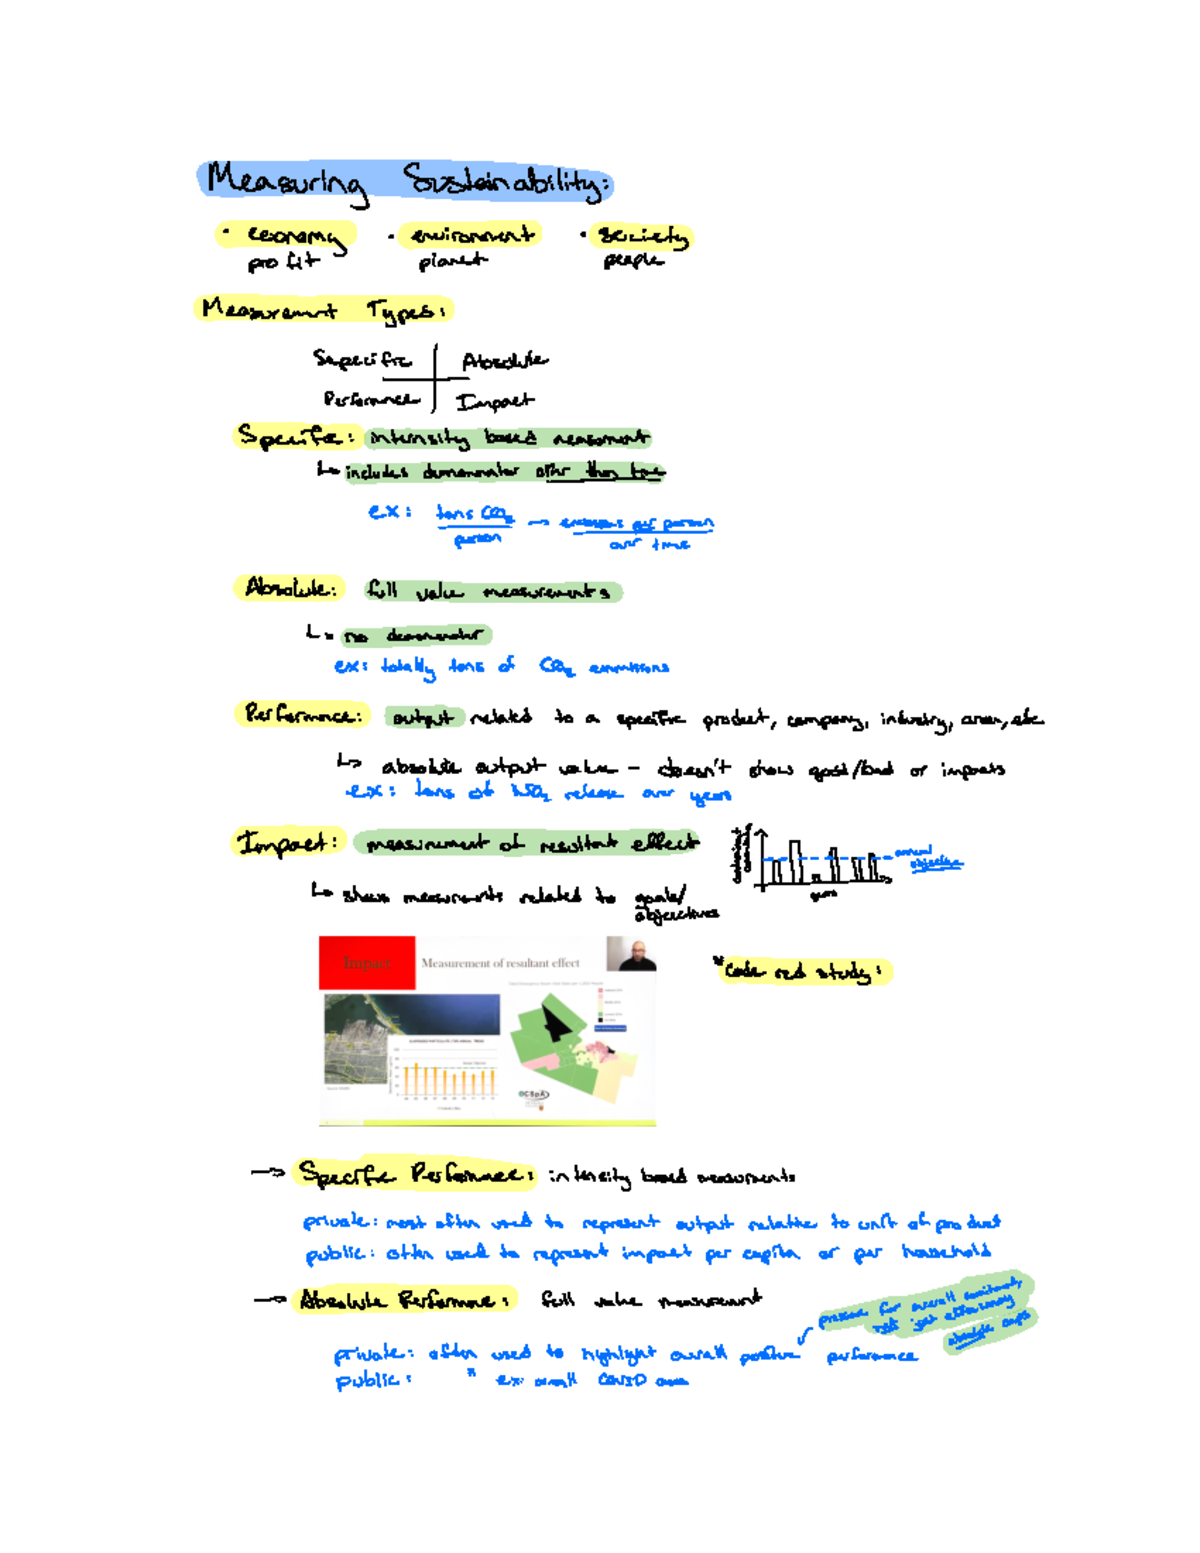 Measuring Sustainability:
• economy • environment • society
profit planet people
Measurement Types:
Sapecific Absolute
Performance Impact
Specific: intensity based measurment
↳ includes demonenator other than time
ex: tons CO2 → emissions per person
person over time
Absolute: full value measurements
↳ no demonenator
ex: totally tons of CO2 emmissions
Performance: output related to a specific product, company, industry, area, etc
↳ absolute output value - doesn't show good/bad or impacts
ex: tons of NO2 release over years
Impact: measurement of resultant effect
annual
objective
years
↳ shows measurements related to goals/
objectives
Impact Measurement of resultant effect
*Code red study:
→ Specific Performance: intensity based measurments
private: most often used to represent output relative to unit of product
public: often used to represent impact per capita or per household
→ Absolute Performance: full value measurement
pressure for overall
not just efficiency
absolute caps
private: often used to highlight overall positive performance
public: " ex: overall COVID